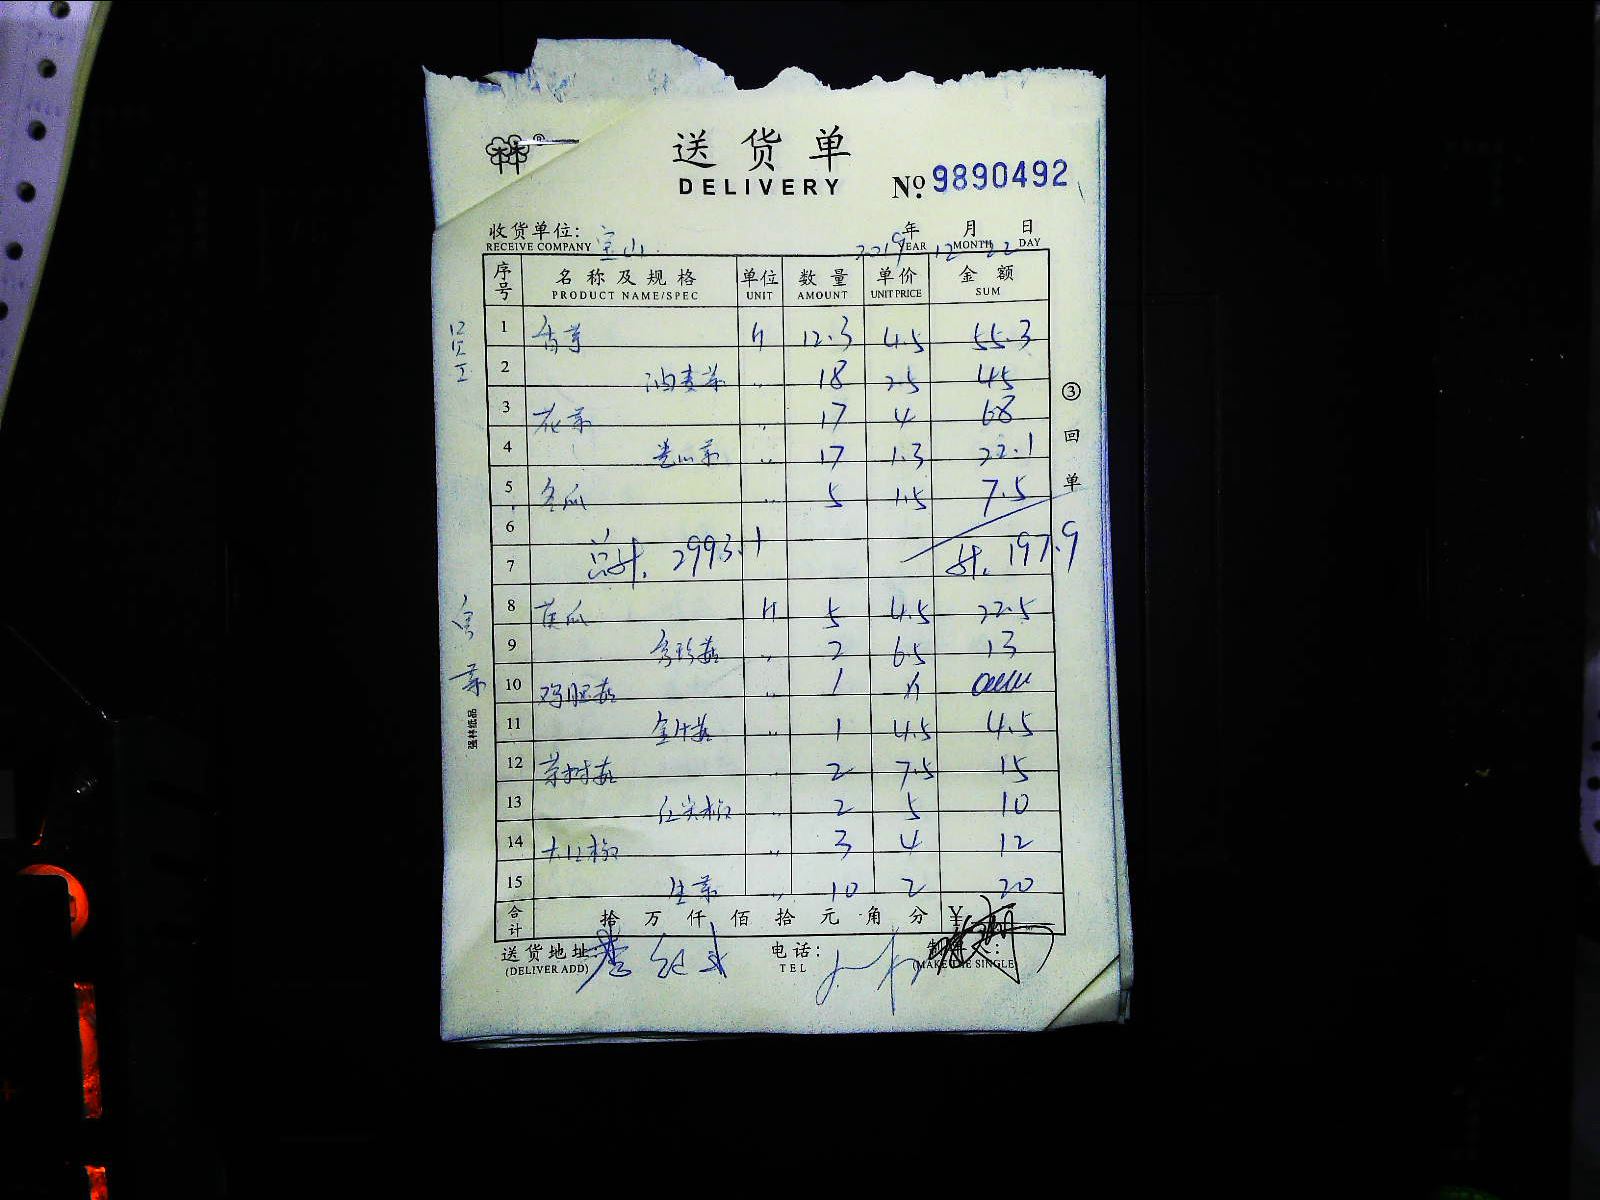 送货单
DELIVERY
No. 9890492
收货单位: 宝山
RECEIVE COMPANY
2019年 12月 22日
YEAR MONTH DAY
序号 名称及规格 单位 数量 单价 金额
PRODUCT NAME/SPEC UNIT AMOUNT UNIT PRICE SUM
1 12.3 4.5 55.3
2 油麦菜 〃 18 2.5 45
3 花菜 〃 17 4 68
4 〃 17 1.3 22.1
5 冬瓜 〃 5 1.5 7.5
6
7 总计. 2993.1 计. 197.9
8 黄瓜 5 4.5 22.5
9 秀珍菇 〃 2 6.5 13
10 鸡腿菇 〃 1
11 金针菇 〃 1 4.5 4.5
12 茶树菇 〃 2 7.5 15
13 红尖椒 〃 2 5 10
14 大红椒 〃 3 4 12
15 生菜 〃 10 2 20
合计 拾 万 仟 佰 拾 元 角 分 ¥
送货地址:
(DELIVER ADD)
电话:
TEL
(MAKE THE SINGLE)
③回单
强林纸品